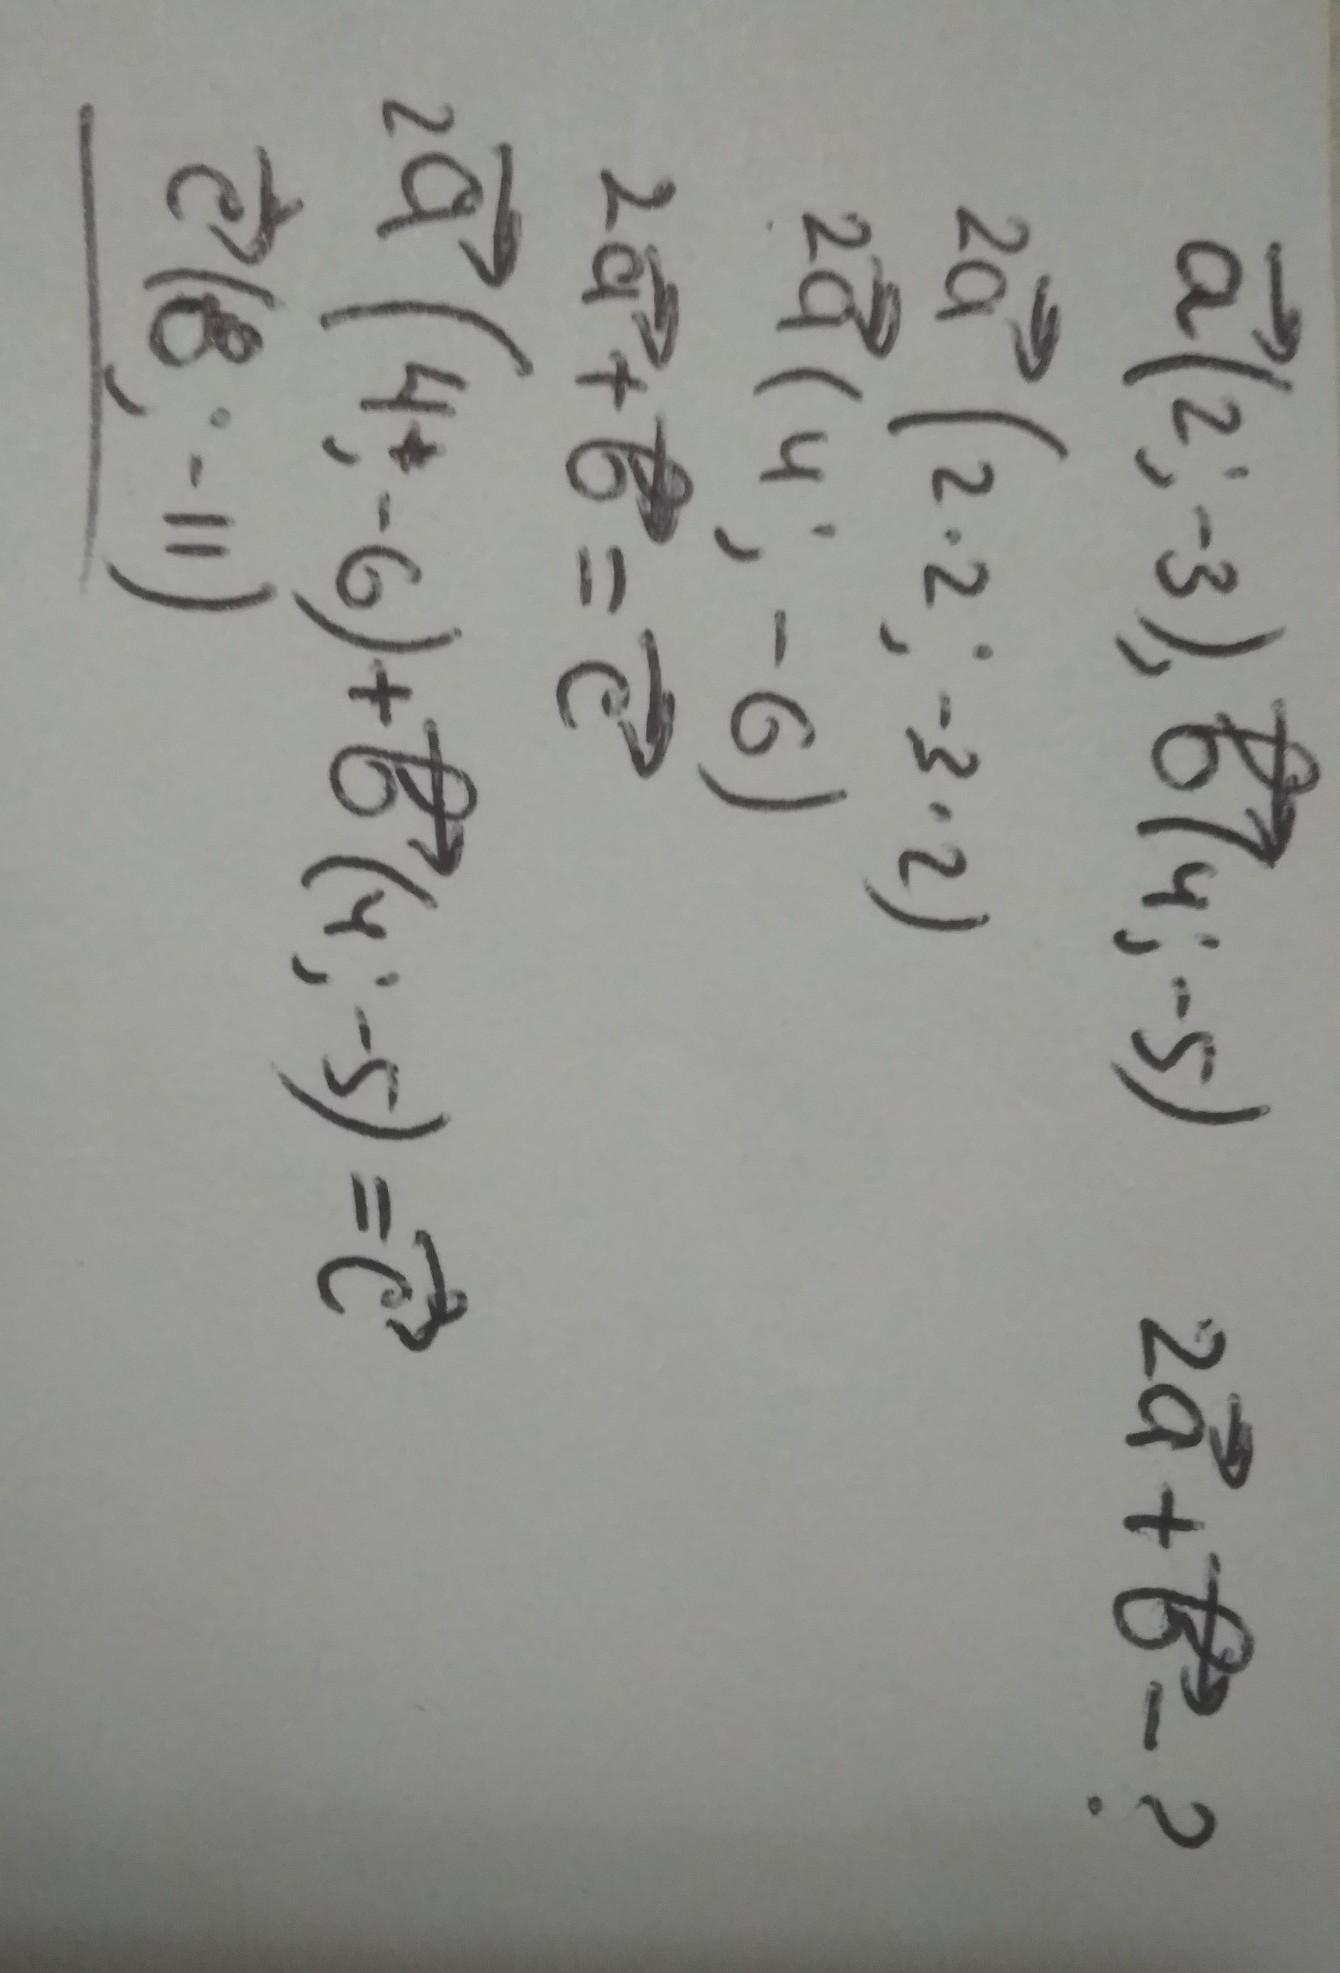 a⃗(2; -3), b⃗(4; -5) 2a⃗ + b⃗ - ?
2a⃗ (2·2; -3·2)
2a⃗ (4; -6)
2a⃗ + b⃗ = c⃗
2a⃗ (4; -6) + b⃗ (4; -5) = c⃗
c⃗ (8; -11)